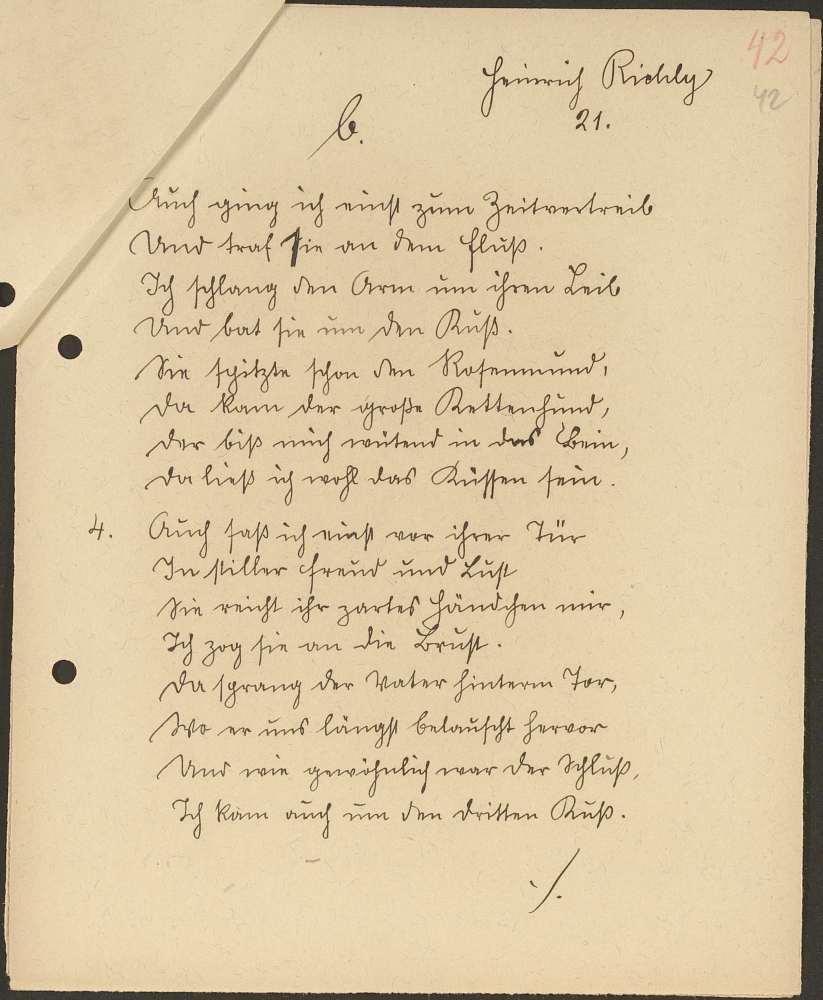 42
Heinrich Richly
42
b.
21.
Auch ging ich einst zum Zeitvertreib
Und traf sie an dem Fluß.
Ich schlang den Arm um ihren Leib
Und bat sie um den Kuß.
Sie spitzte schon den Rosenmund,
Da kam der große Kettenhund,
Der biß mich wütend in das Bein,
Da ließ ich wohl das Küssen sein.
4. Auch saß ich einst vor ihrer Tür
In stiller Freud und Lust
Sie reicht ihr zartes Händchen mir,
Ich zog sie an die Brust.
Da sprang der Vater hinterm Tor,
Wo er uns längst belauscht hervor
Und wie gewöhnlich war der Schluß,
Ich kam auch um den dritten Kuß.
./.